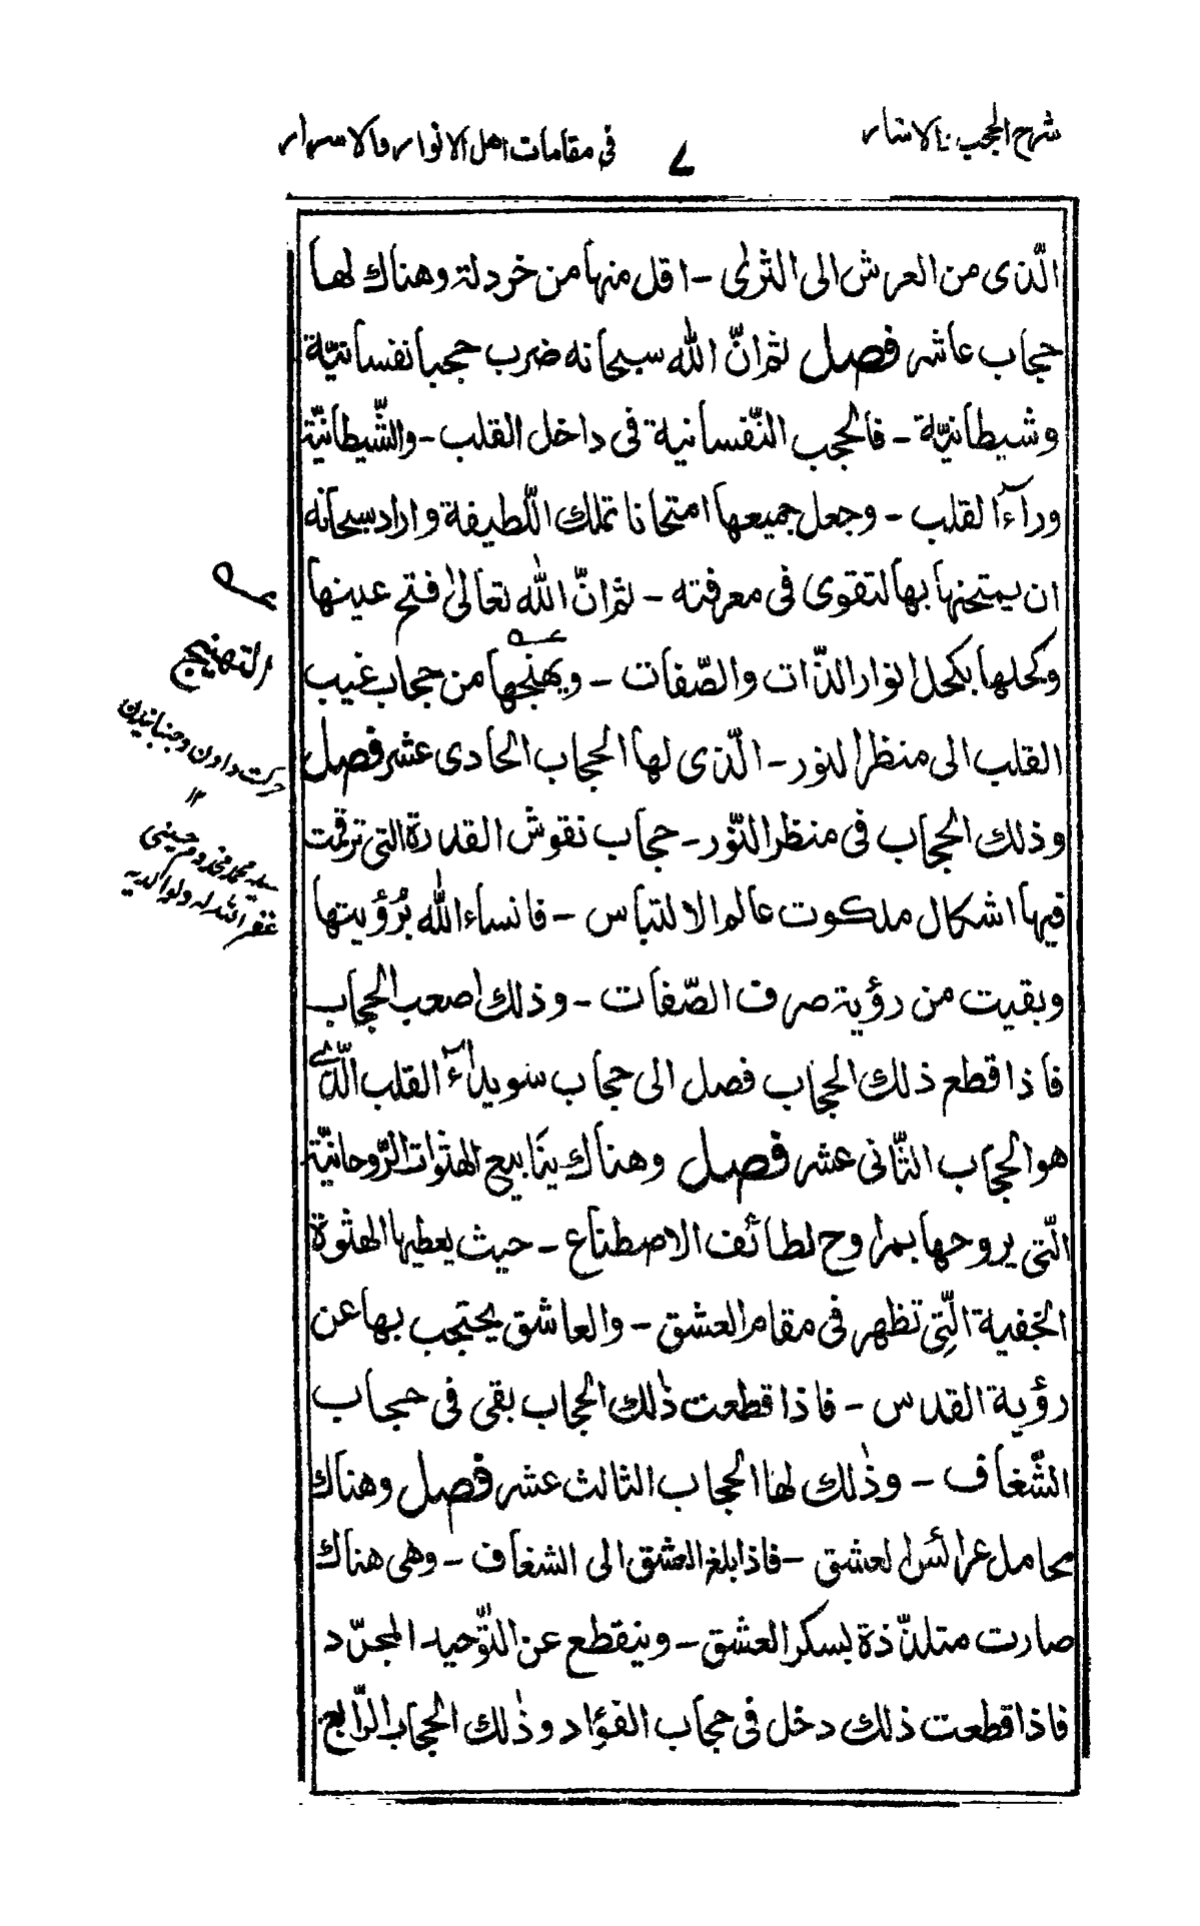 شرح الحجب والاستار
٧
في مقامات اهل الانوار والاسرار
الّذى من العرش الى الثرى - اقل منها من خردلة وهناك لها
حجاب عاشر فصل ثم انّ الله سبحانه ضرب حجبا نفسانيّة
وشيطانيّة - فالحجب النّفسانية فى داخل القلب - والشّيطانيّة
ورآء القلب - وجعل جميعها امتحانا تلك اللّطيفة واراد سبحانه
ان يمتحنها بها لتقوى فى معرفته - ثم انّ الله تعالىٰ فتح عينها
وكحلها بكحل انوار الذّات والصّفات - ويهنجها من حجاب غيب
القلب الى منظر النور - الّذى لها الحجاب الحادى عشر فصل
وذلك الحجاب فى منظر النّور - حجاب نقوش القدرة التى ترقمت
فيها اشكال ملكوت عالم الالتباس - فانساء الله برُؤيتها
وبقيت من رؤية صرف الصّفات - وذلك اصعب الحجاب
فاذا قطع ذلك الحجاب فصل الى حجاب سويدآء القلب الّذى
هو الحجاب الثّانى عشر فصل وهناك ينابيع الهثوات الرّوحانيّة
الّتى يروحها بمراوح لطائف الاصطناع - حيث يعطيها الهثوة
الخفية الّتِى تظهر فى مقام العشق - والعاشق يحتجب بها عن
رؤية القدس - فاذا قطعت ذٰلك الحجاب بقى فى حجاب
الشّغاف - وذٰلك لها الحجاب الثالث عشر فصل وهناك
محامل عرائس العشق - فاذا بلغ العشق الى الشغاف - وهى هناك
صارت متلذّذة بسكر العشق - وينقطع عن التّوحيد المجرّد
فاذا قطعت ذلك دخل فى حجاب الفؤاد وذٰلك الحجاب الرّابع
عـه
التهنيج
حركت دادن وجنبانيدن
١٢
سيد محمد مخدوم حسينى
غفر الله له ولوالديه